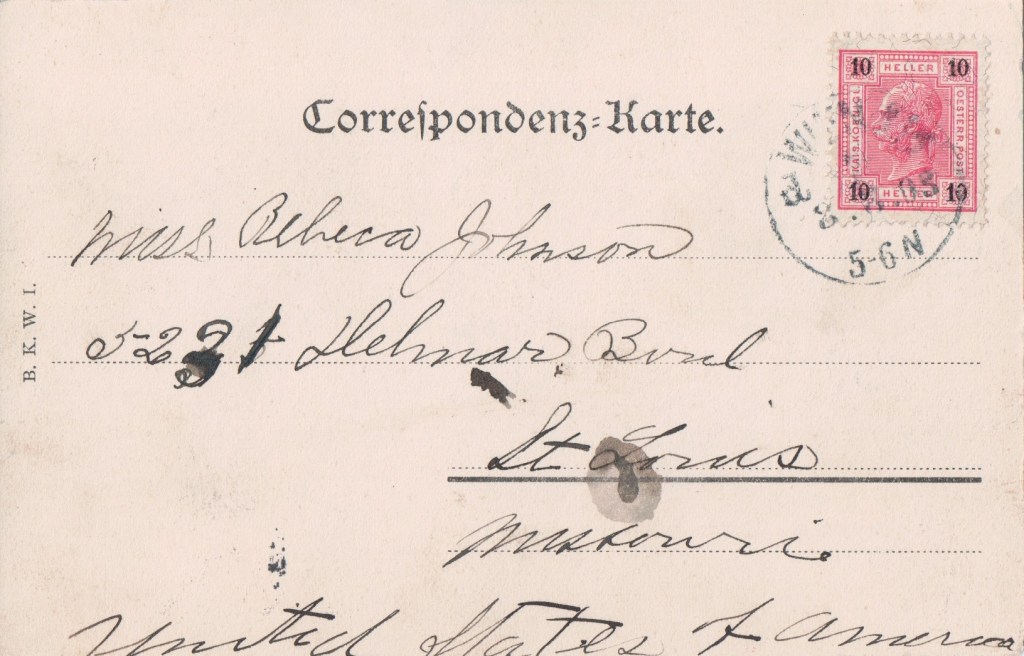 Correspondenz-Karte.
10 HELLER 10
OESTERR. POST
10 HELLER 10
WIEN
05
5-6 N
Miss Rebeca Johnson
Delmar Boul
St Louis
Missouri.
United States of America
B. K. W. I.